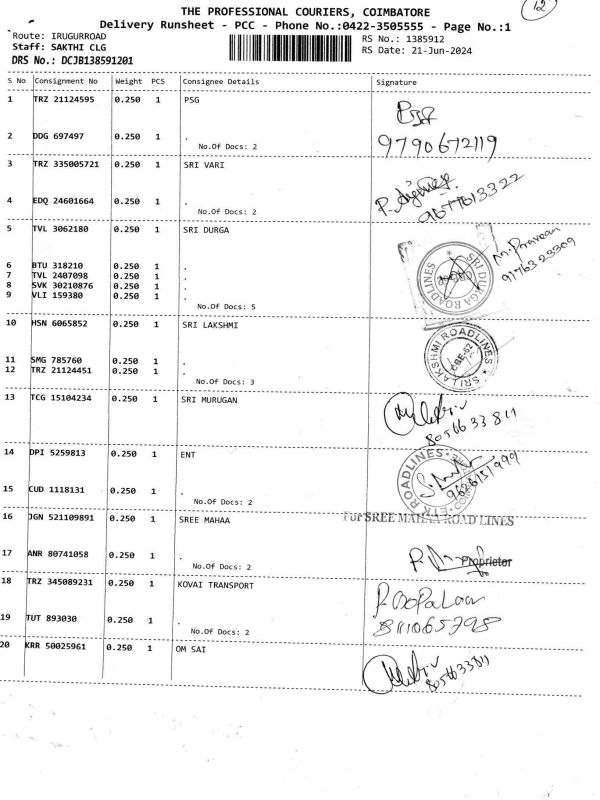 12
THE PROFESSIONAL COURIERS, COIMBATORE
Delivery Runsheet - PCC - Phone No.:0422-3505555 - Page No.:1
Route: IRUGURROAD
RS No.: 1385912
Staff: SAKTHI CLG
RS Date: 21-Jun-2024
DRS No.: DCJB138591201
S No Consignment No Weight PCS Consignee Details Signature
1 TRZ 21124595 0.250 1 PSG
2 DDG 697497 0.250 1 .
No.Of Docs: 2
9790672119
3 TRZ 335005721 0.250 1 SRI VARI
4 EDQ 24601664 0.250 1 .
No.Of Docs: 2
9677613322
5 TVL 3062180 0.250 1 SRI DURGA
M. Praveen
9176323309
SRI DURGA ROADLINES
6 BTU 318210 0.250 1 .
7 TVL 2407098 0.250 1 .
8 SVK 30210876 0.250 1 .
9 VLI 159380 0.250 1 .
No.Of Docs: 5
10 HSN 6065852 0.250 1 SRI LAKSHMI
SRI LAKSHMI ROADLINES
CBE-62
11 SMG 785760 0.250 1 .
12 TRZ 21124451 0.250 1 .
No.Of Docs: 3
13 TCG 15104234 0.250 1 SRI MURUGAN
8056633811
14 DPI 5259813 0.250 1 ENT
ROADLINES
15 CUD 1118131 0.250 1 .
No.Of Docs: 2
9626151999
16 JGN 521109891 0.250 1 SREE MAHAA
For SREE MAHAA ROAD LINES
17 ANR 80741058 0.250 1 .
No.Of Docs: 2
Proprietor
18 TRZ 345089231 0.250 1 KOVAI TRANSPORT
19 TUT 893030 0.250 1 .
No.Of Docs: 2
20 KRR 50025961 0.250 1 OM SAI
8056633811